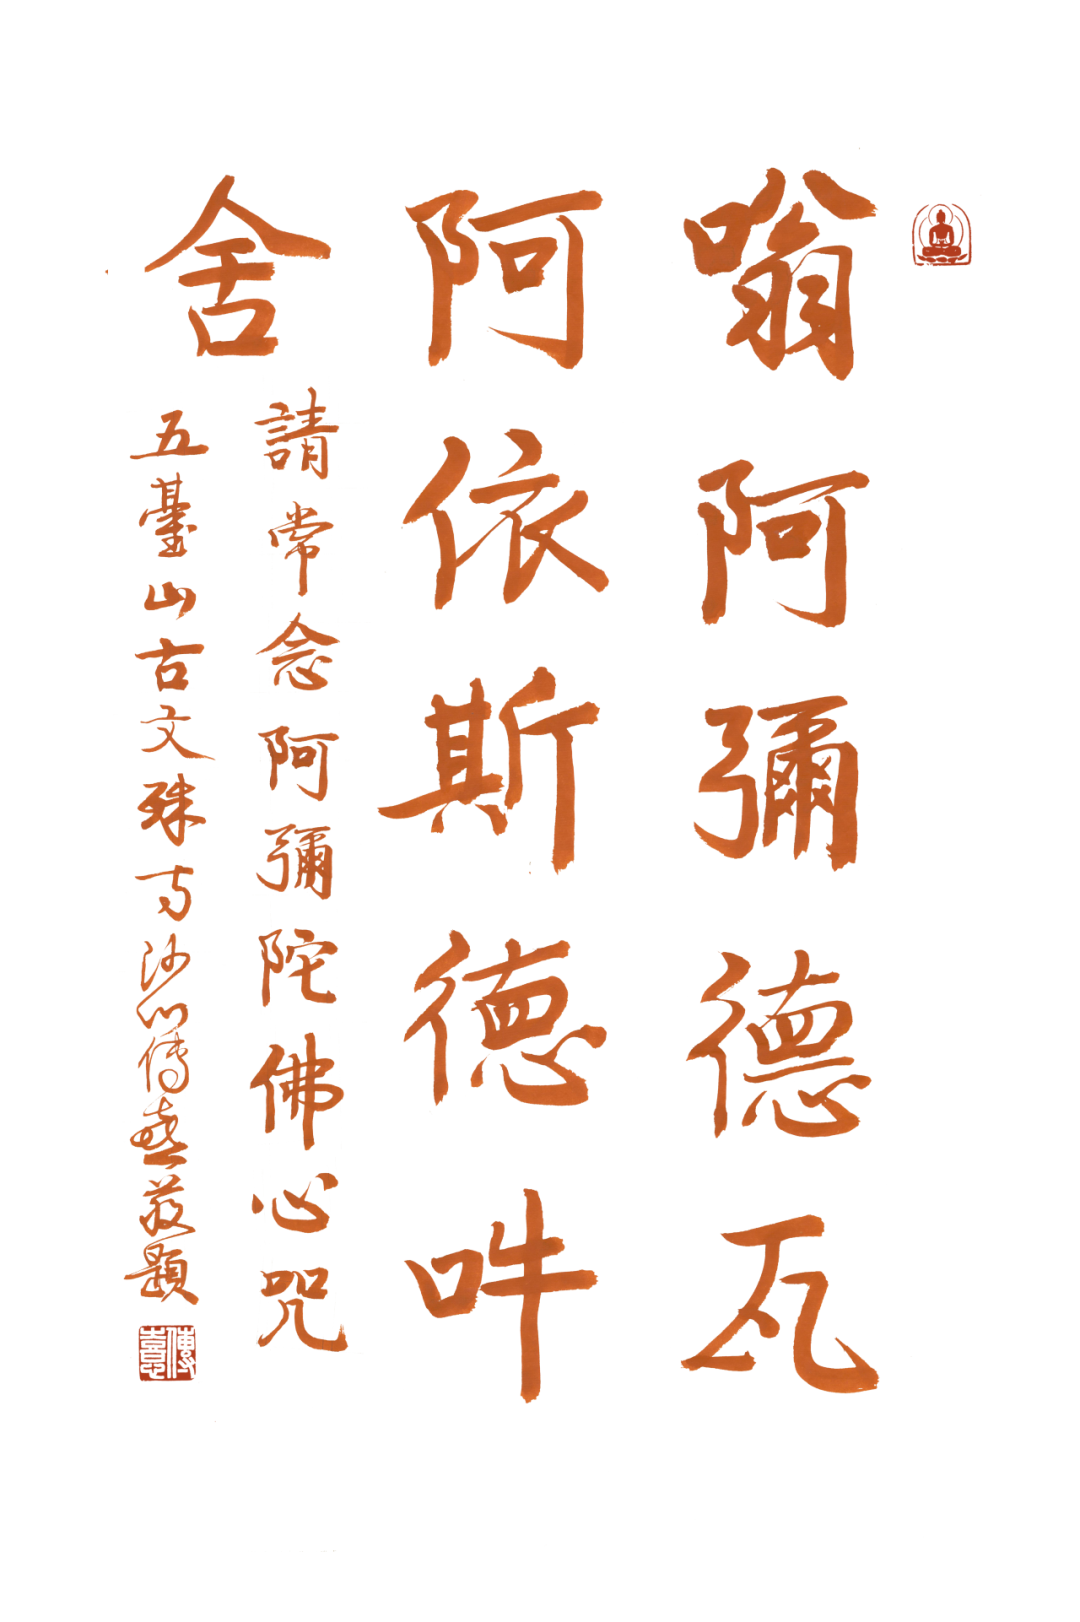 嗡阿彌德瓦
阿依斯德吽
舍
請常念阿彌陀佛心咒
五臺山古文殊寺沙门傳喜敬題
傳喜